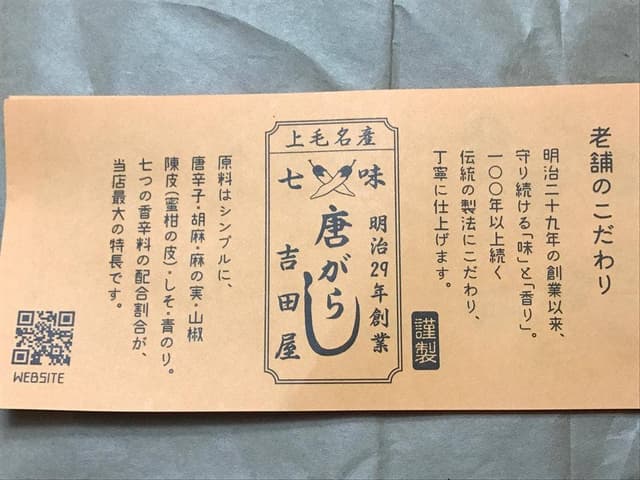 老舗のこだわり
明治二十九年の創業以来、
守り続ける「味」と「香り」。
一〇〇年以上続く
伝統の製法にこだわり、
丁寧に仕上げます。
謹製
上毛名産
七味
唐がらし
明治29年創業
吉田屋
原料はシンプルに、
唐辛子・胡麻・麻の実・山椒
陳皮(蜜柑の皮)・しそ・青のり。
七つの香辛料の配合割合が、
当店最大の特長です。
WEBSITE